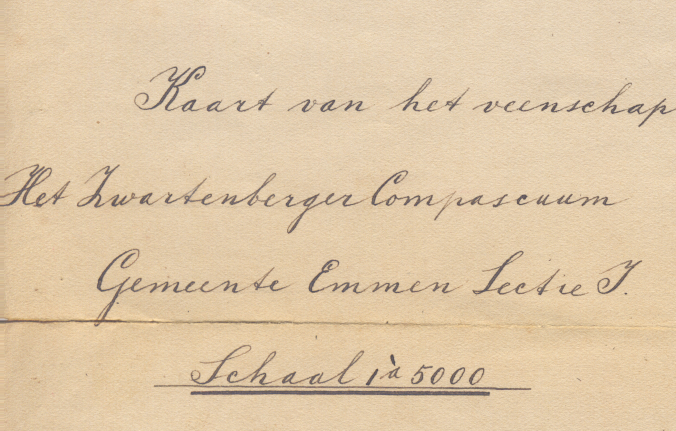 Kaart van het veenschap
Het Zwartenberger Compascuum
Gemeente Emmen Sectie I.
Schaal 1 à 5000